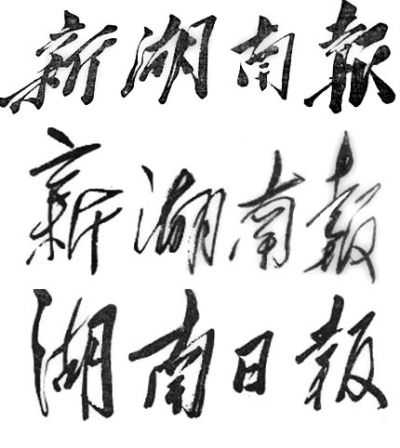 新湖南报
新湖南報
湖南日报